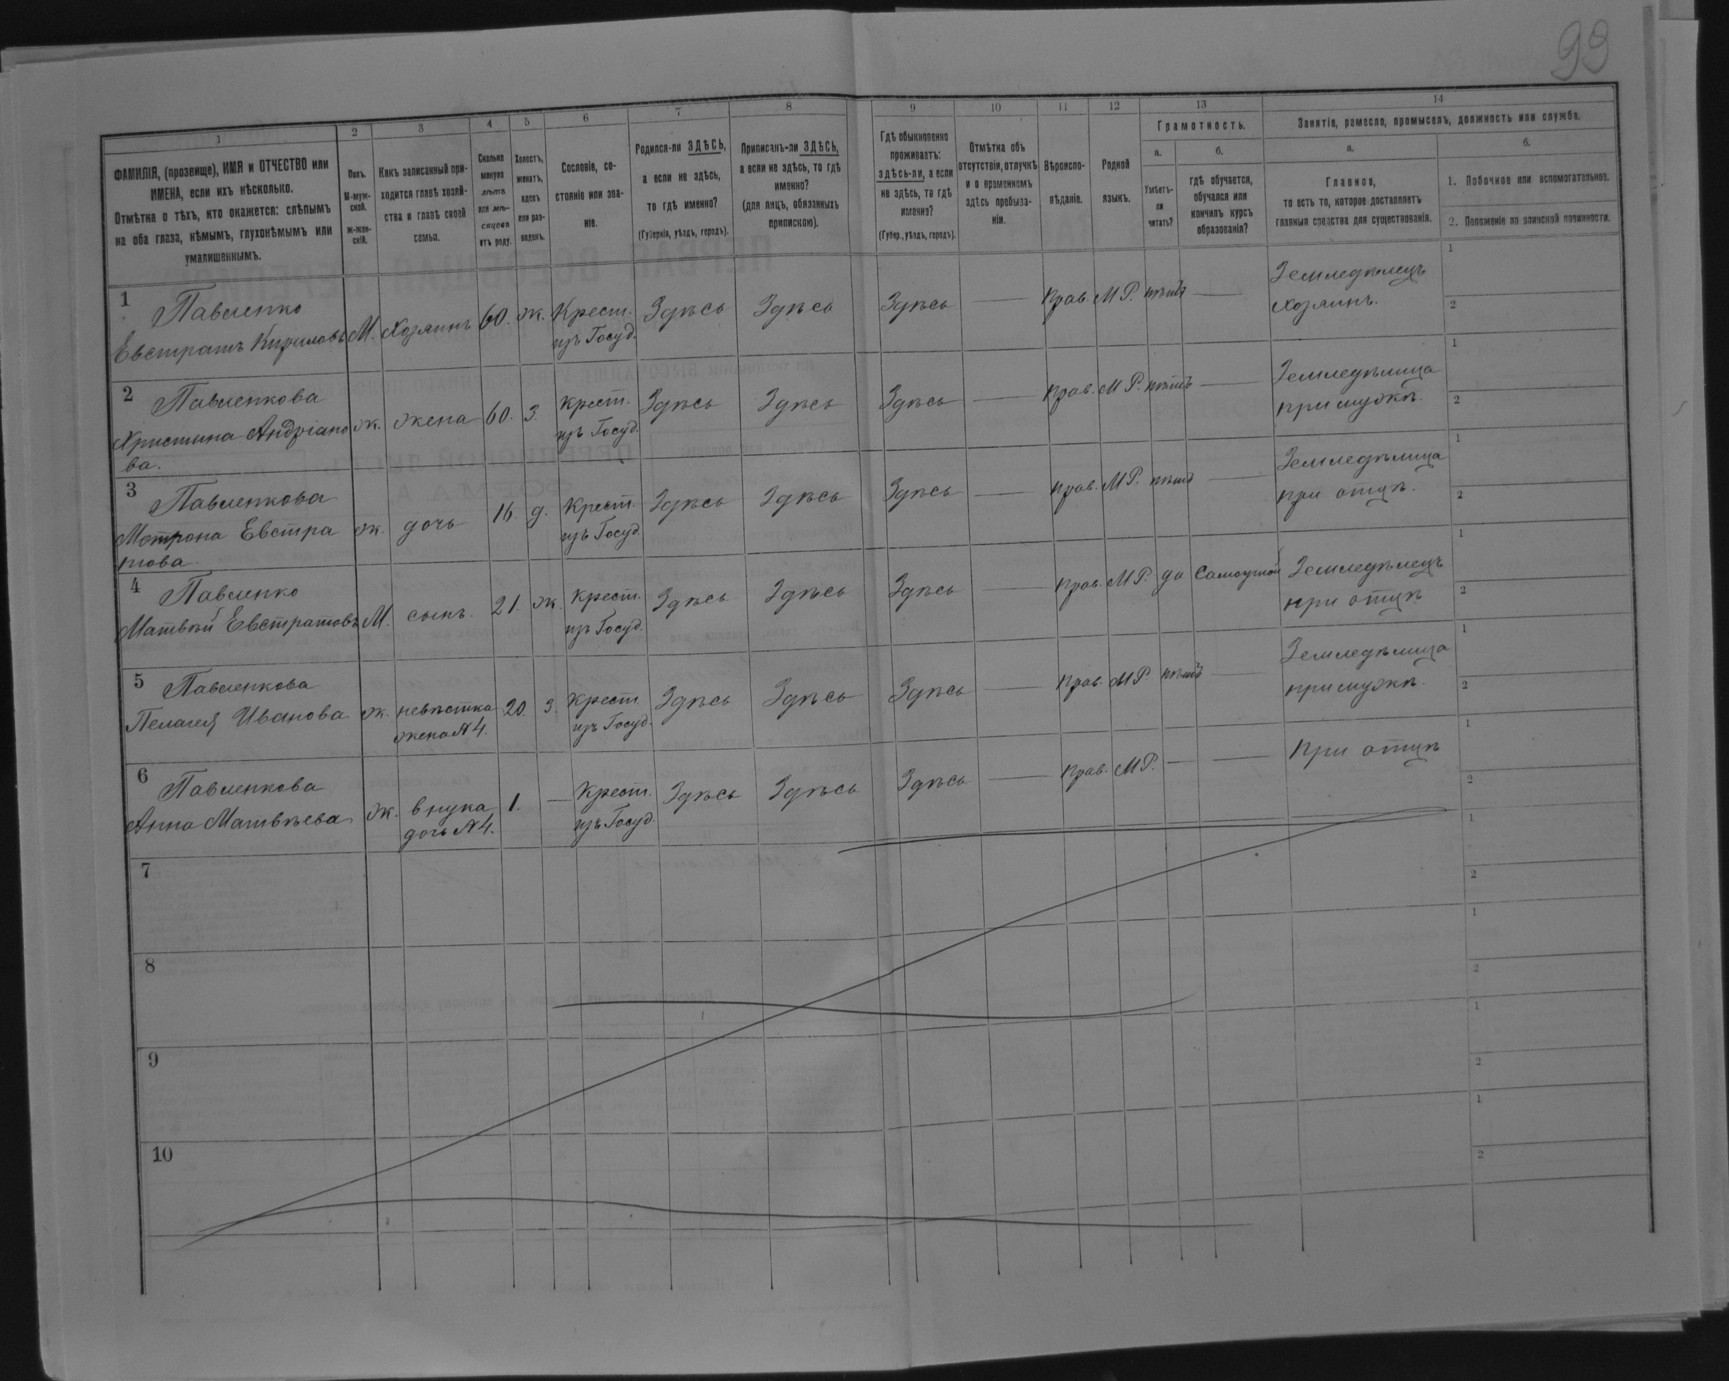 99
1 2 3 4 5 6 7 8 9 10 11 12 13 14
ФАМИЛІЯ, (прозвище), ИМЯ и ОТЧЕСТВО или
ИМЕНА, если ихъ нѣсколько.
Отмѣтка о тѣхъ, кто окажется: слѣпымъ
на оба глаза, нѣмымъ, глухонѣмымъ или
умалишеннымъ.
Полъ.
М-муж-
ской.
Ж-жен-
скій.
Какъ записанный при-
ходится главѣ хозяй-
ства и главѣ своей
семьи.
Сколько
минуло
лѣтъ
или мѣ-
сяцевъ
отъ роду.
Холостъ,
женатъ,
вдовъ
или раз-
веденъ.
Сословіе, со-
стояніе или зва-
ніе.
Родился-ли ЗДѢСЬ,
а если не здѣсь,
то гдѣ именно?
(Губернія, уѣздъ, городъ).
Приписанъ-ли ЗДѢСЬ,
а если не здѣсь, то гдѣ
именно?
(для лицъ, обязанныхъ
припискою).
Гдѣ обыкновенно
проживаетъ:
здѣсь-ли, а если
не здѣсь, то гдѣ
именно?
(Губер., уѣздъ, городъ).
Отмѣтка объ
отсутствіи, отлучкѣ
и о временномъ
здѣсь пребыва-
ніи.
Вѣроиспо-
вѣданіе.
Родной
языкъ.
Грамотность.
а.
Умѣетъ-
ли
читать?
б.
гдѣ обучается,
обучался или
кончилъ курсъ
образованія?
Занятіе, ремесло, промыселъ, должность или служба.
а.
Главное,
то есть то, которое доставляетъ
главныя средства для существованія.
б.
1. Побочное или вспомогательное.
2. Положеніе по воинской повинности.
1 Павленко
Евстратъ Кириловъ М. Хозяинъ 60. ж. Крест. изъ Госуд. Здѣсь Здѣсь Здѣсь — Прав. М Р. нѣтъ — Земледѣлецъ
Хозяинъ.
1
2
2 Павленкова
Христина Андріано
ва. ж. жена 60. З. Крест. изъ Госуд. Здѣсь Здѣсь Здѣсь — Прав. М Р. нѣтъ — Земледѣлица
при мужѣ.
1
2
3 Павленкова
Мотрона Евстра
това. ж. дочь 16 д. Крест. изъ Госуд. Здѣсь Здѣсь Здѣсь — Прав. М Р. нѣтъ — Земледѣлица
при отцѣ.
1
2
4 Павленко
Матвѣй Евстратовъ М. сынъ. 21. ж. Крест. изъ Госуд. Здѣсь Здѣсь Здѣсь — Прав. М Р. да Самоучкой Земледѣлецъ
при отцѣ
1
2
5 Павленкова
Пелагея Иванова ж. невѣстка
жена №4. 20. З. Крест. изъ Госуд. Здѣсь Здѣсь Здѣсь — Прав. М Р нѣтъ — Земледѣлица
при мужѣ.
1
2
6 Павленкова
Анна Матвѣева ж. внука
дочь №4. 1. — Крест. изъ Госуд. Здѣсь Здѣсь Здѣсь — Прав. М Р. — — При отцѣ
1
2
7
1
2
8
1
2
9
1
2
10
1
2